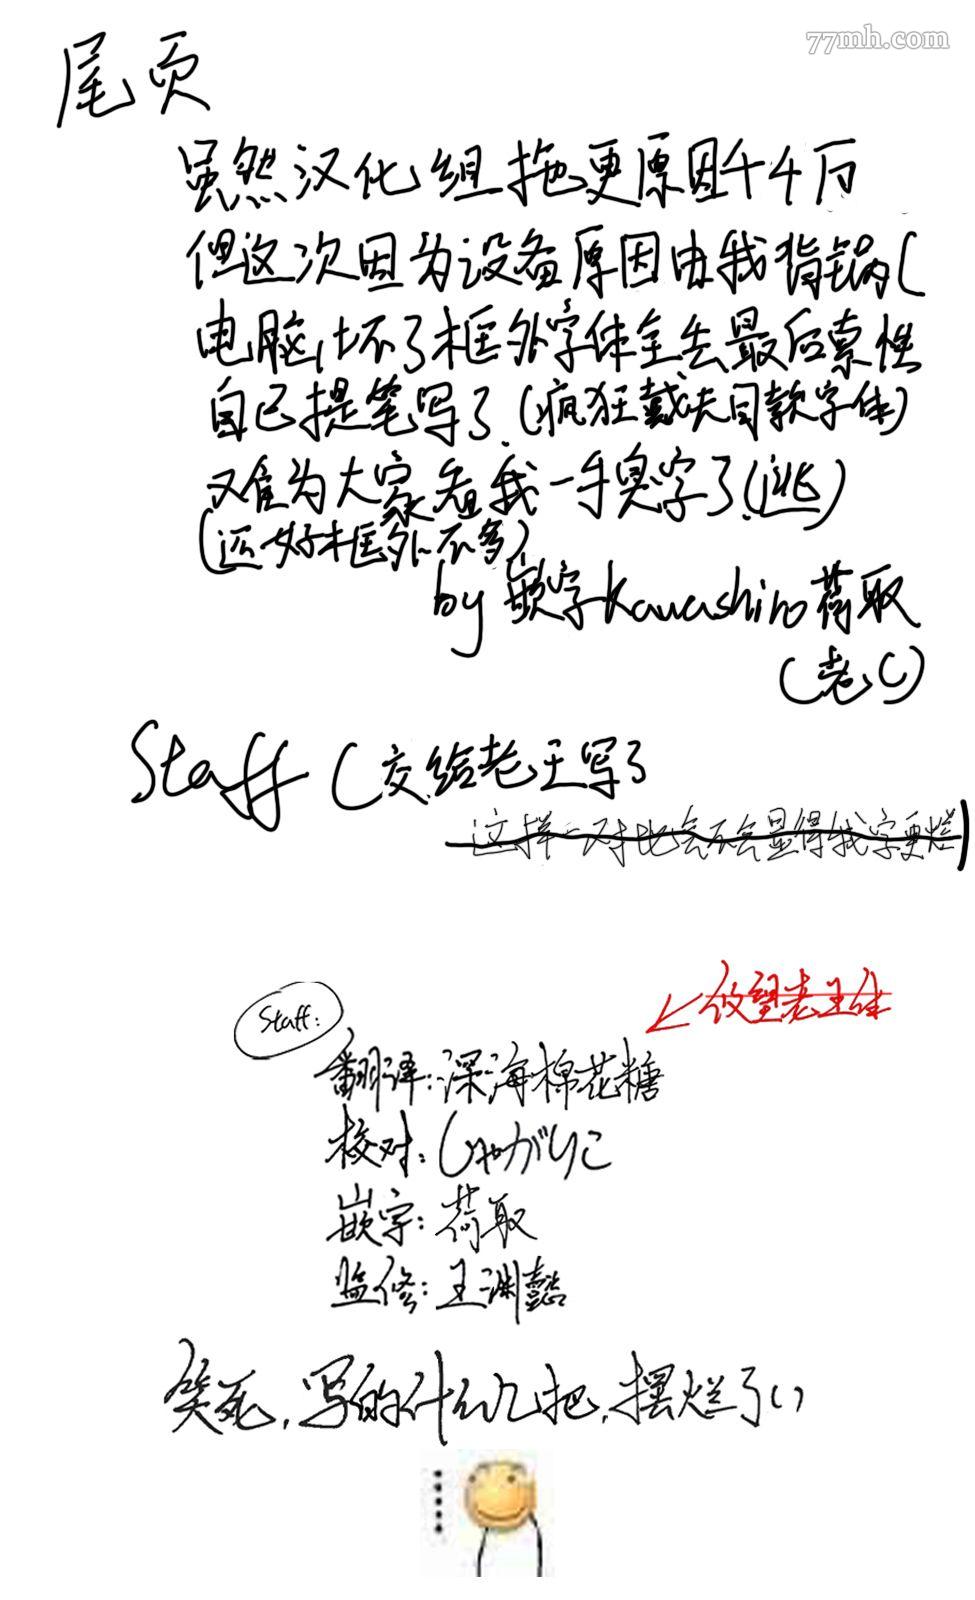 77mh.com
尾页
虽然汉化组拖更原因千千万
但这次因为设备原因由我背锅(
电脑坏了框外字体全丢最后索性
自己提笔写了(疯狂戴夫同款字体)
难为大家看我一手臭字了(逃)
(还好框外不多)
by 嵌字Kawashiro荷取
(老C)
Staff (交给老王写了
这样一对比会不会显得我字更烂)
仰望老王体
Staff:
翻译:深海棉花糖
校对:じゃがりこ
嵌字:荷取
监修:王渊懿
笑死,写的什么几把,摆烂了()